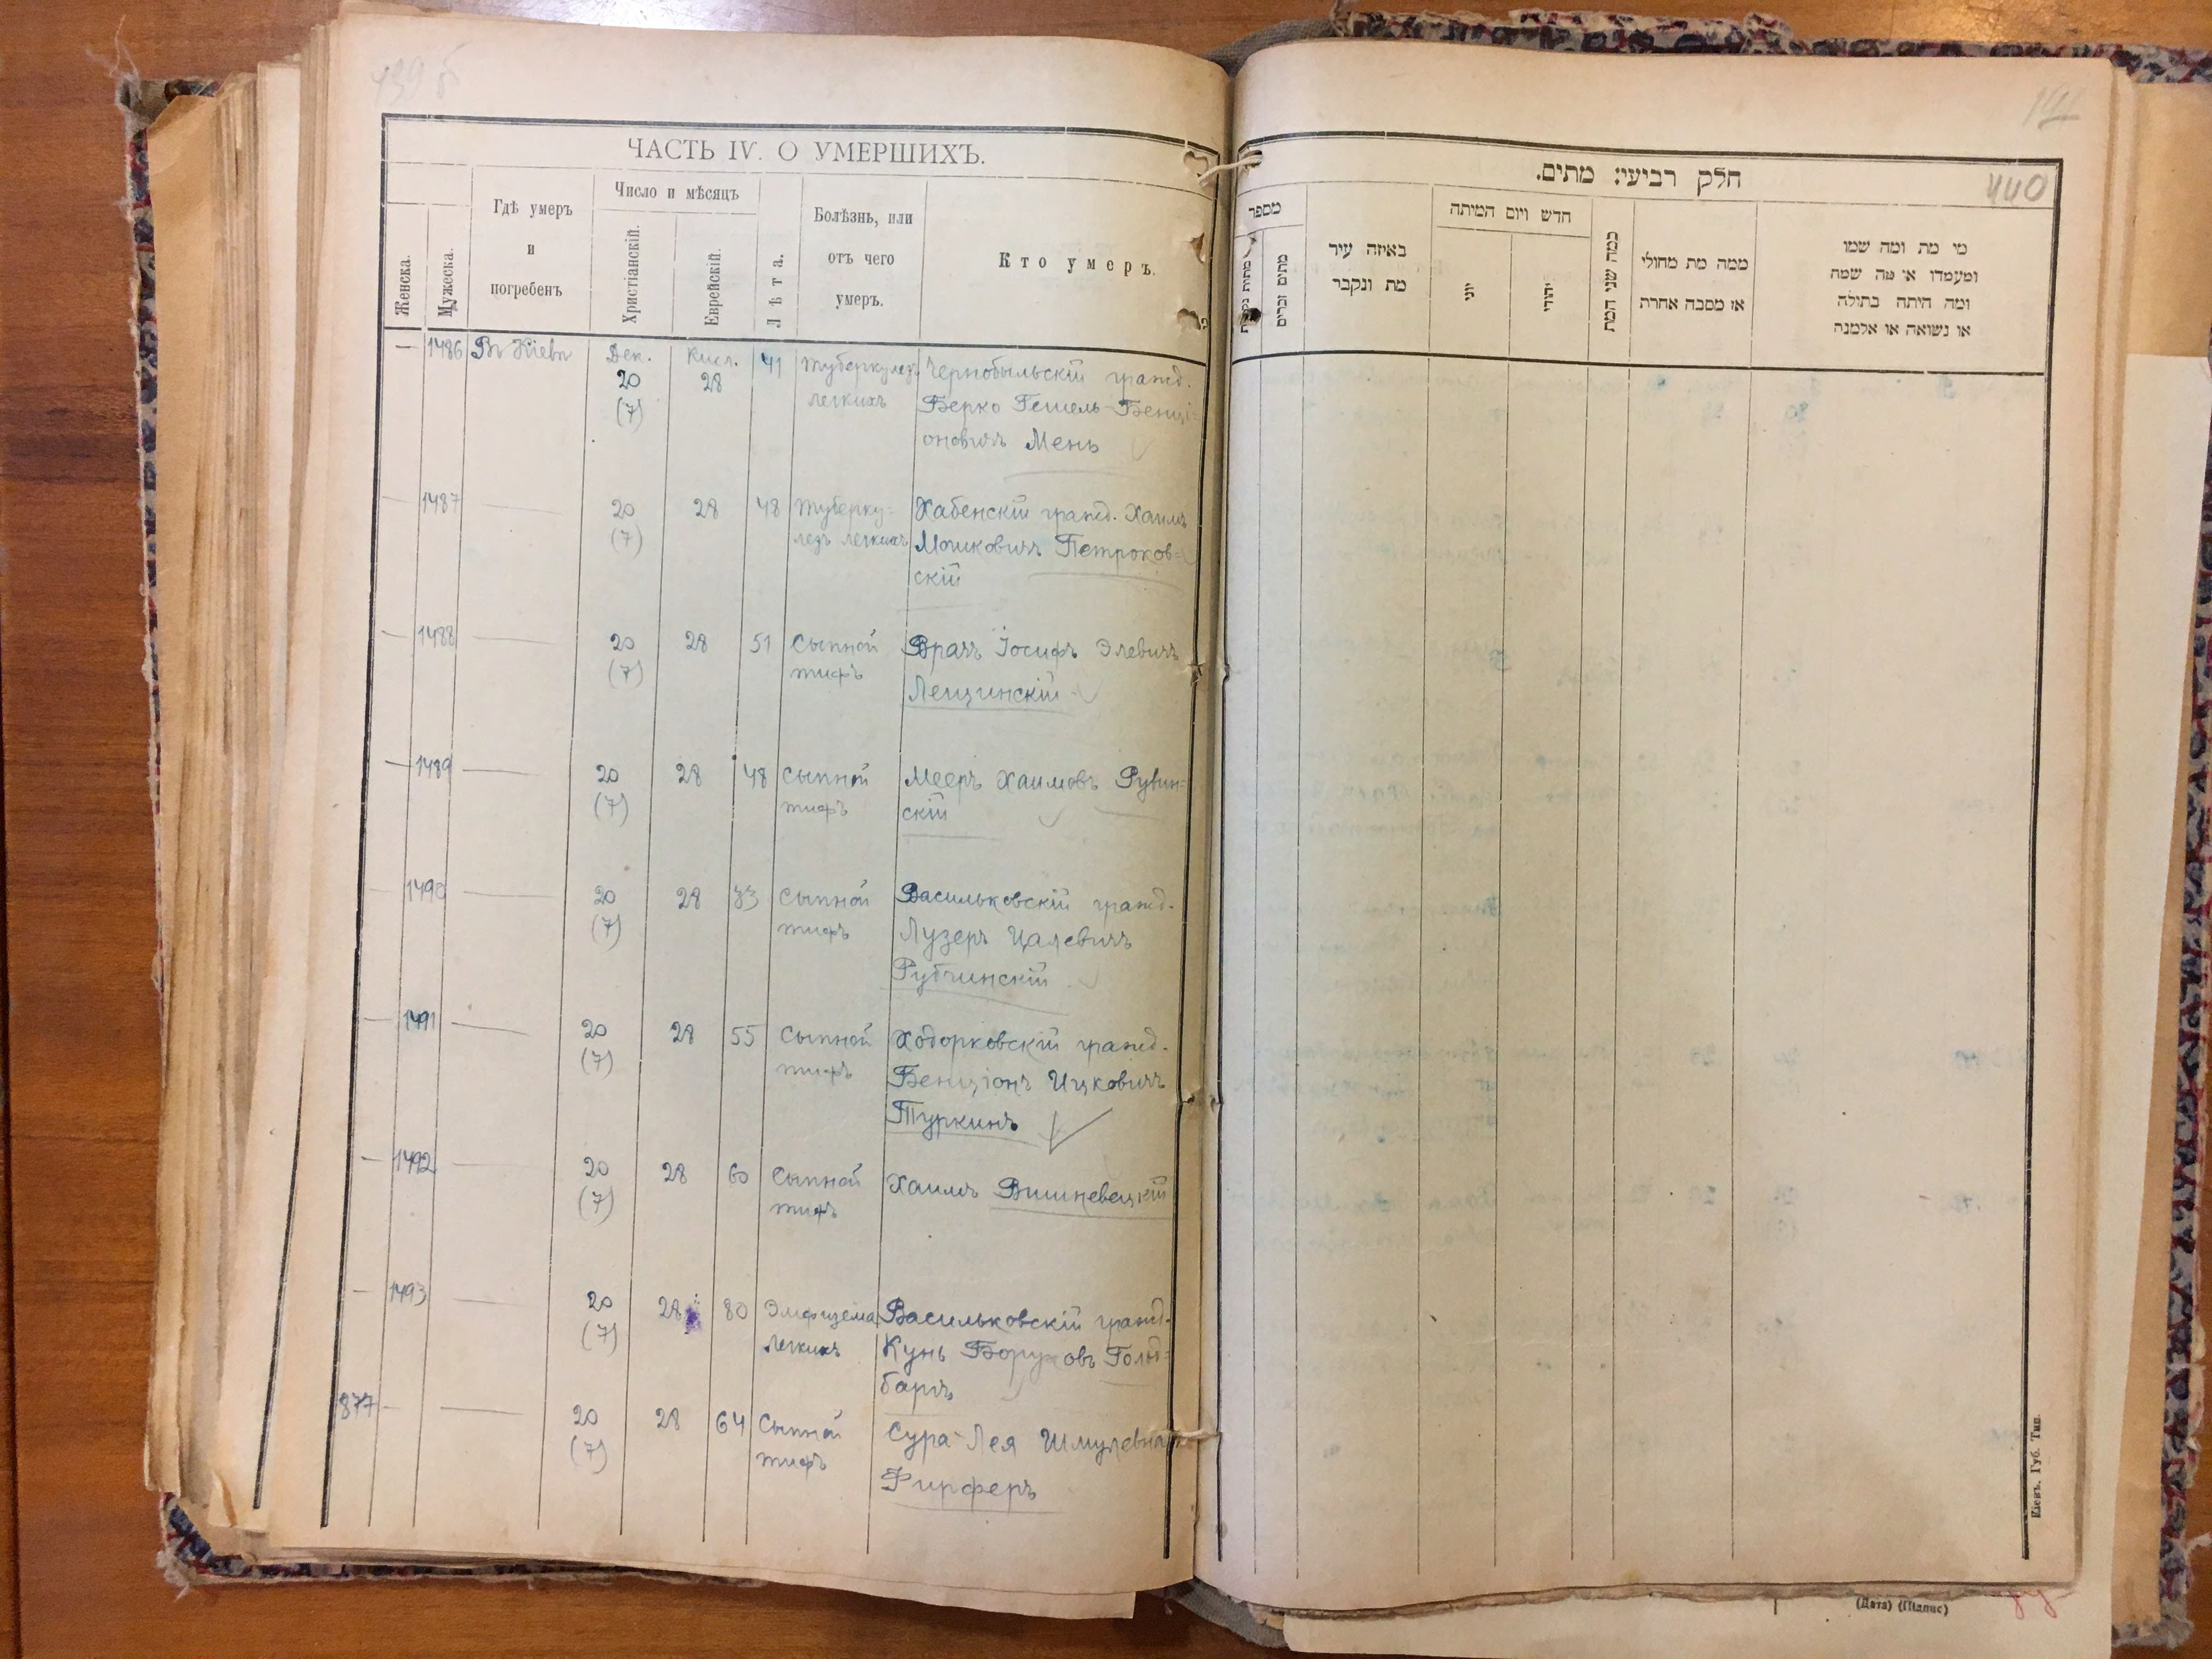 439 б
ЧАСТЬ IV. О УМЕРШИХЪ.
Женска.
Мужеска.
Гдѣ умеръ
и
погребенъ
Число и мѣсяцъ
Христіанскій.
Еврейскій.
Лѣта.
Болѣзнь, или
отъ чего
умеръ.
Кто умеръ.
— 1486 Въ Кіевѣ Дек. Кисл. 41 туберкулезъ Чернобыльскій гражд.
20 28 легкихъ Берко Гешель-Бенці-
(7) оновичъ Мень
— 1487 — 20 28 48 туберку= Хабенскій гражд. Хаимъ
(7) лезъ легкихъ Мошковичъ Петроков=
скій
— 1488 — 20 28 51 Сыпной Врачъ Іосифъ Элевичъ
(7) тифъ Лещинскій
— 1489 — 20 28 48 Сыпной Мееръ Хаимовъ Рувин=
(7) тифъ скій
— 1490 — 20 28 33 Сыпной Васильковскій гражд.
(7) тифъ Лузеръ Цалевичъ
Рубчинскій
— 1491 — 20 28 55 Сыпной Ходорковскій гражд.
(7) тифъ Бенціонъ Ицковичъ
Туркинъ
— 1492 — 20 28 60 Сыпной Хаимъ Вишневецкій
(7) тифъ
— 1493 — 20 28 80 Эмфизема Васильковскій гражд.
(7) легкихъ Кунь Боруховъ Гольд=
баръ
877 — — 20 28 64 Сыпной Сура-Лея Шмулевна
(7) тифъ Фирферъ
440
חלק רביעי: מתים.
מספר
מתים זכרים
באיזה עיר
מת ונקבר
חדש ויום המיתה
יוני
יהודי
כמה שני המת
ממה מת מחולי
או מסבה אחרת
מי מת ומה שמו
ומעמדו או מה שמה
ומה היתה בתולה
או נשואה או אלמנה
Кіевъ. Губ. Тип.
(Дата) (Підпис)